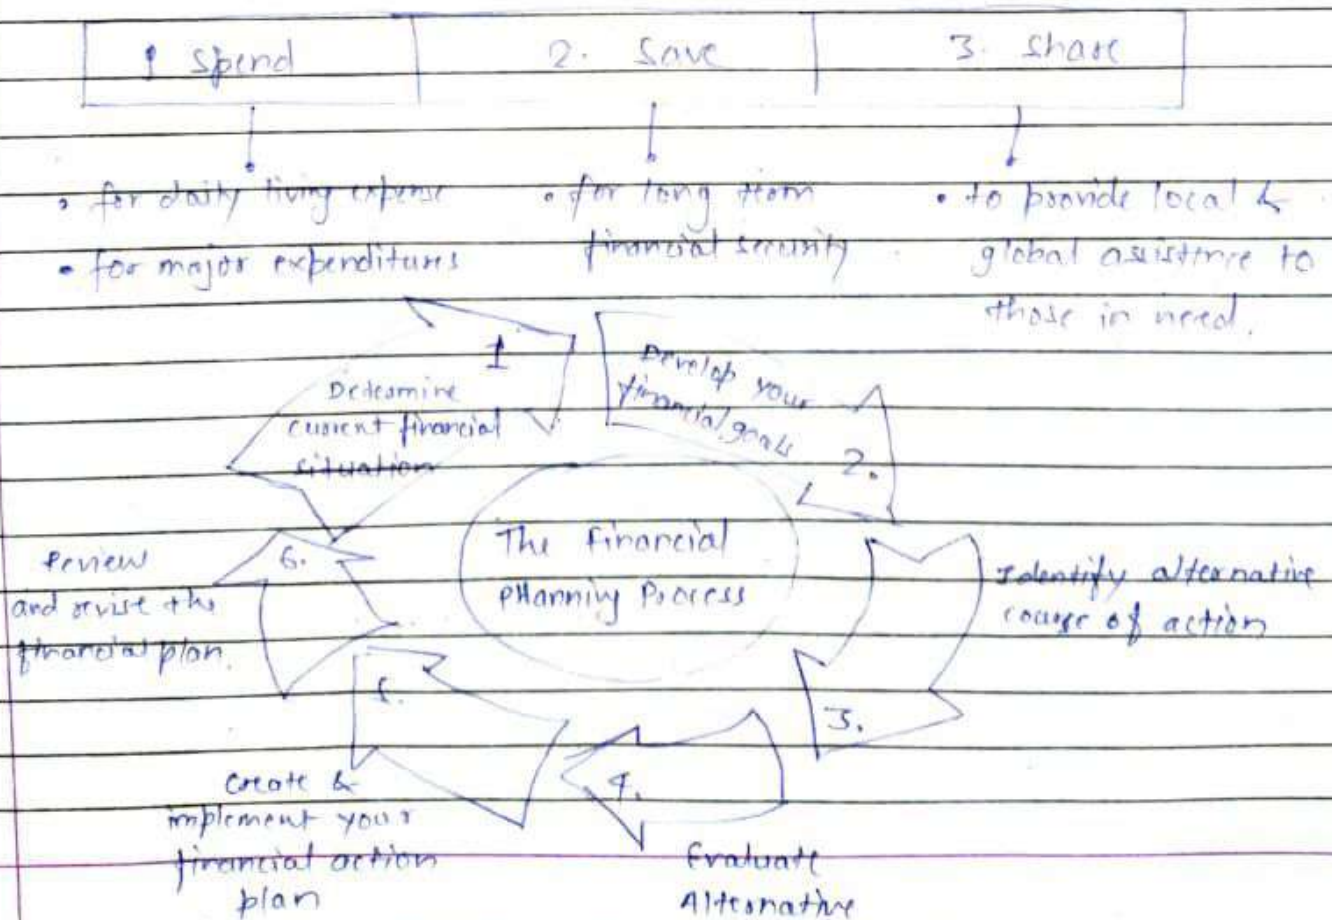 1 Spend
2. Save
3. Share
• for daily living expense
• for major expenditures
• for long term
financial security
• to provide local &
global assistence to
those in need.
1
Determine
current financial
situation
Develop your
financial goals
2.
The Financial
pHanning Process
Identify alternative
course of action
3.
4.
Evaluate
Alternative
5.
Create &
implement your
financial action
plan
6.
Review
and revise the
financial plan.